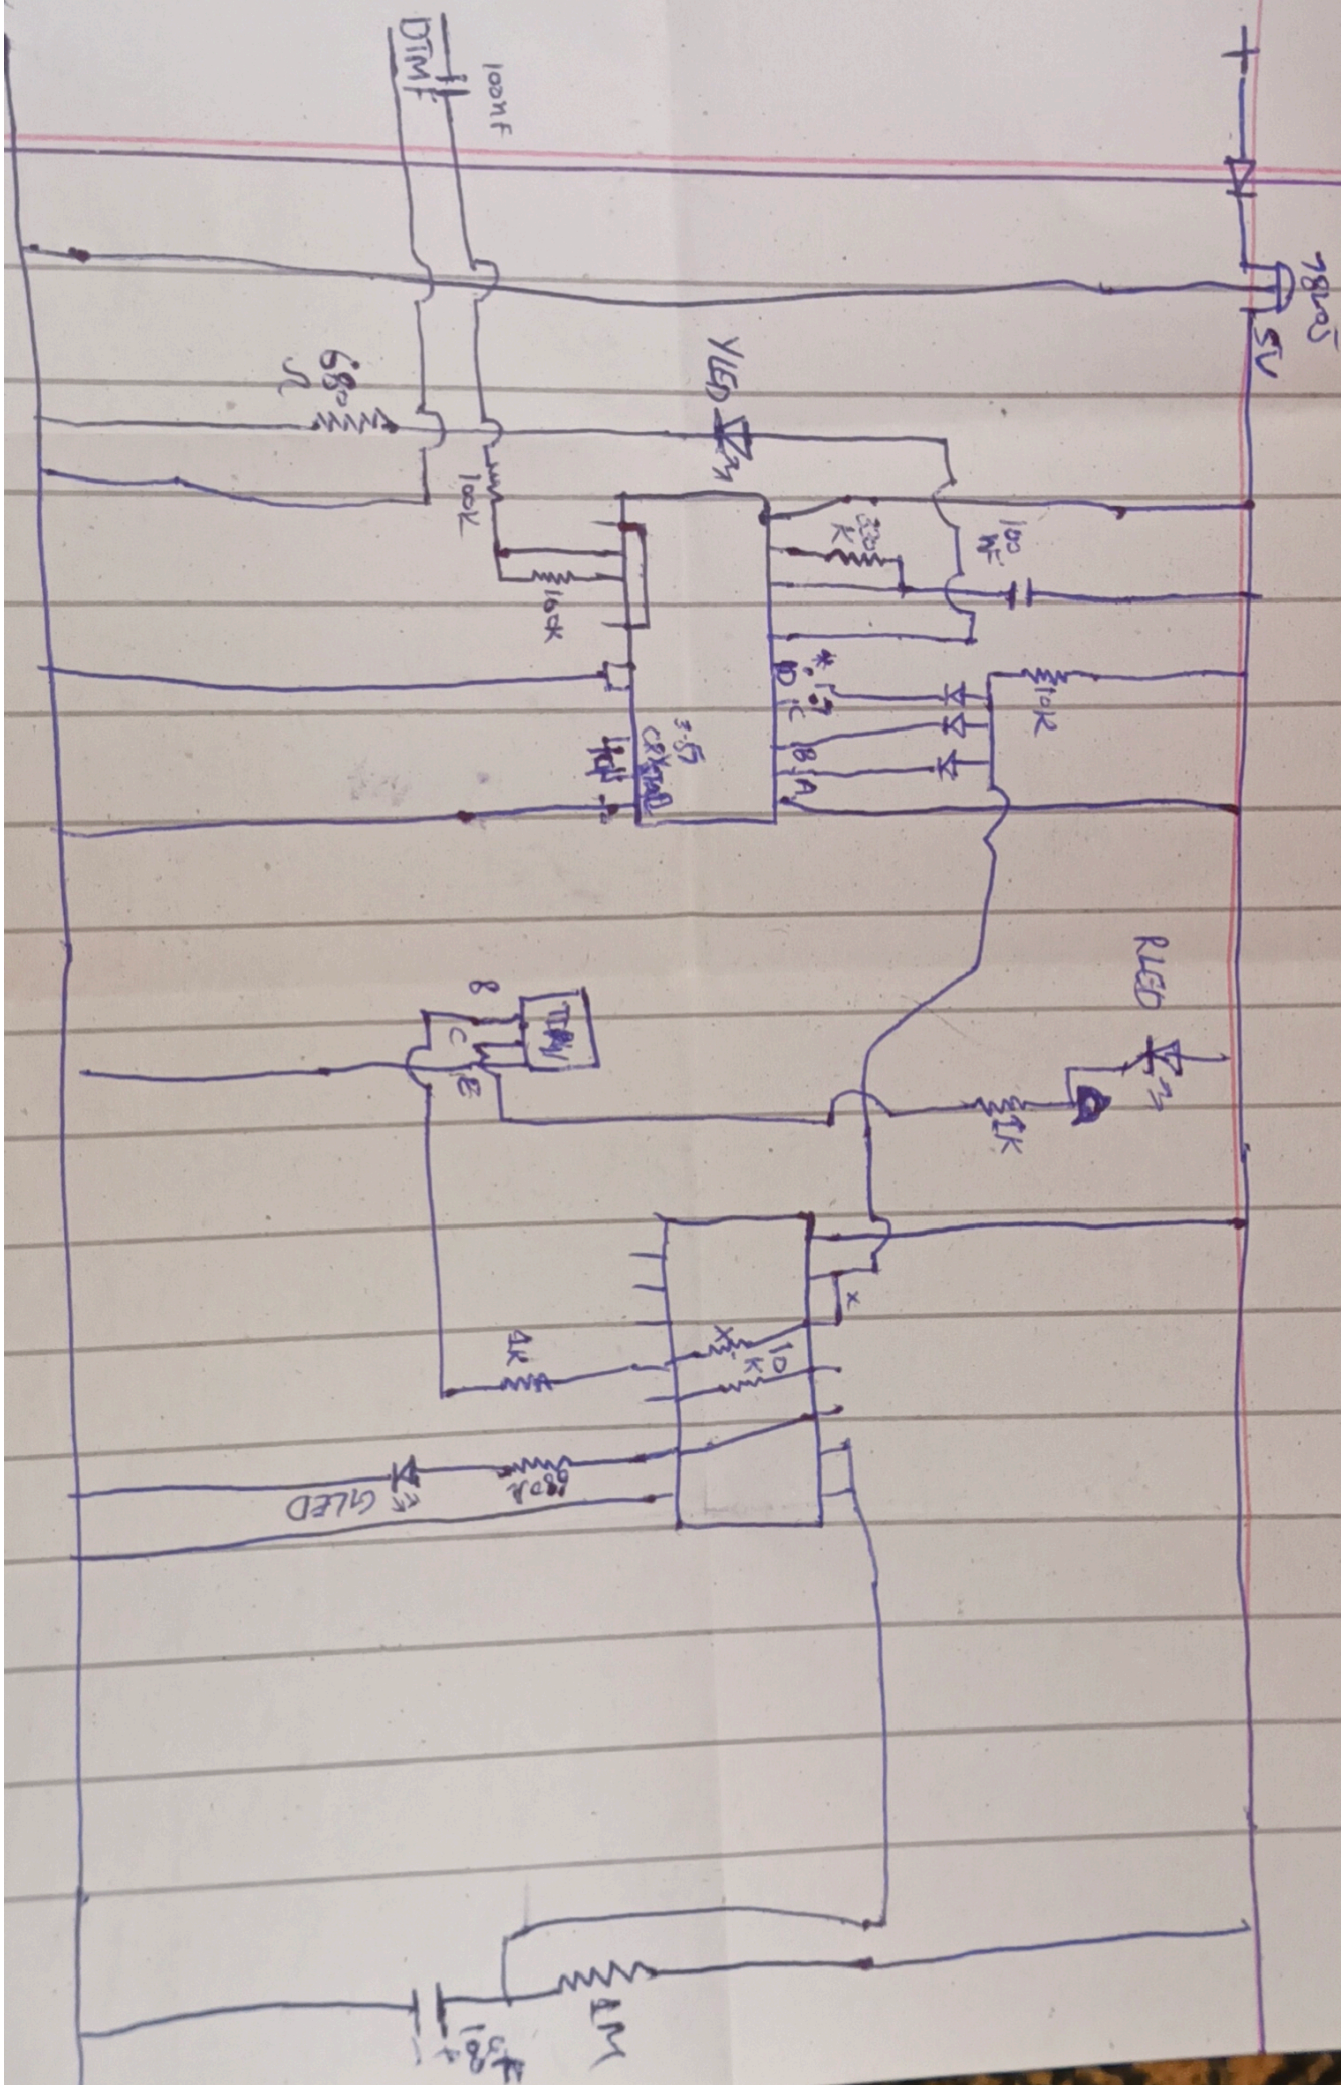 +
78L05
5V
100nF
DTMF
680
Ω
YLED
100K
100K
330
K
100
nF
10K
D
C
B
A
3.57
CRYSTAL
RLED
1K
B
C
E
x
X
10
K
1K
680R
GLED
1M